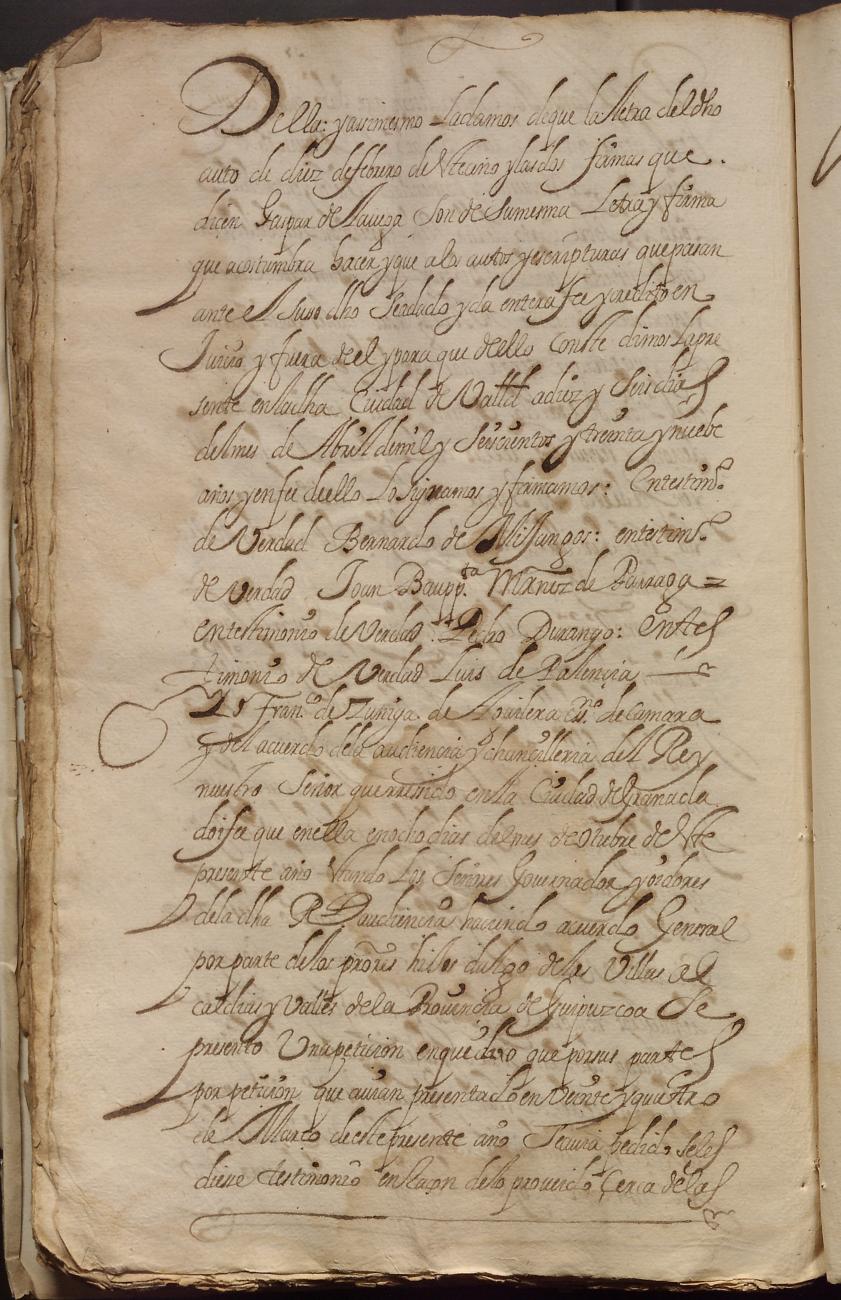 Della: y assimesmo La damos de que la Letra del dho
auto de diez de febrero deste año y las dos firmas que
dicen Gaspar de Lauega Son de Su mesma Letra y firma
que acostumbra hacer y que a los autos y escripturas que pasan
ante el suso dho Se a dado y da entera fee y credito en
Juicio y fuera de el y para que dello Conste dimos La pre
sente en la dha Ciudad de Valld a diez y Seis dias
del mes de Abril de mil y Seiscientos y treinta y nuebe
años y en fee de ello Lo signamos y firmamos: En testim.º
de Verdad Bernardo de Missangos: en testim.º
de Verdad Joan Baupp.ta Mrñez de Parraga =
en testimonio de Verdad: Pedro Durango: En tes
timonio de Verdad Luis de Palencia
Yo Fran.co de Zuniga de Aguilera es.no de camara
y del acuerdo de la audiencia y chancilleria del Rey
nuestro Señor que rreside en la Ciudad de Granada
doi fee que en ella en ocho dias del mes de Otubre deste
presente año estando Los Señores Gouernador y oidores
de la dha Rl audiencia haciendo acuerdo General
por parte de los hijos dalgo de las Villas al
caldias y Valles de la Prouincia de Guipuzcoa Se
presento Una peticion en que dixo que por sus partes
por peticion que auian presentado en Veinte y quatro
de Março deste presente año Se auia pedido Se les
diese testimonio en Raçon de lo proueido Cerca de las